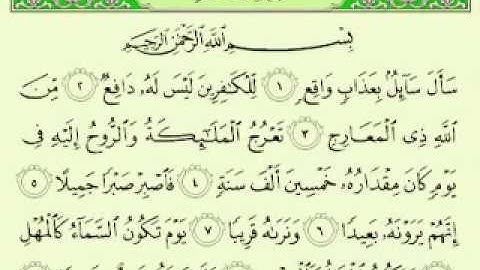 بِسْمِ ٱللَّهِ ٱلرَّحْمَٰنِ ٱلرَّحِيمِ
سَأَلَ سَآئِلٌۢ بِعَذَابٍ وَاقِعٍ ١ لِّلْكَٰفِرِينَ لَيْسَ لَهُۥ دَافِعٌ ٢ مِّنَ
ٱللَّهِ ذِى ٱلْمَعَارِجِ ٣ تَعْرُجُ ٱلْمَلَٰٓئِكَةُ وَٱلرُّوحُ إِلَيْهِ فِى
يَوْمٍ كَانَ مِقْدَارُهُۥ خَمْسِينَ أَلْفَ سَنَةٍ ٤ فَٱصْبِرْ صَبْرًا جَمِيلًا ٥
إِنَّهُمْ يَرَوْنَهُۥ بَعِيدًا ٦ وَنَرَىٰهُ قَرِيبًا ٧ يَوْمَ تَكُونُ ٱلسَّمَآءُ كَٱلْمُهْلِ